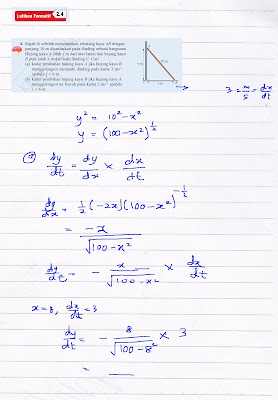 Latihan Formatif 2.4
4. Rajah di sebelah menunjukkan sebatang kayu AB dengan
panjang 10 m disandarkan pada dinding sebuah bangunan.
Hujung kayu A ialah y m dari atas lantai dan hujung kayu
B pula ialah x m dari kaki dinding C. Cari
(a) kadar perubahan hujung kayu A jika hujung kayu B
menggelongsor menjauhi dinding pada kadar 3 ms⁻¹
apabila x = 8 m,
(b) kadar perubahan hujung kayu B jika hujung kayu A
menggelongsor ke bawah pada kadar 2 ms⁻¹ apabila
y = 6 m.
10 m
→ 3 = m/s = dx/dt
y² = 10² - x²
y = (100 - x²)^(1/2)
(a) dy/dt = dy/dx × dx/dt
dy/dx = 1/2 (-2x)(100 - x²)^(-1/2)
= -x/√(100 - x²)
dy/dt = - x/√(100 - x²) × dx/dt
x = 8, dx/dt = 3
dy/dt = - 8/√(100 - 8²) × 3
=